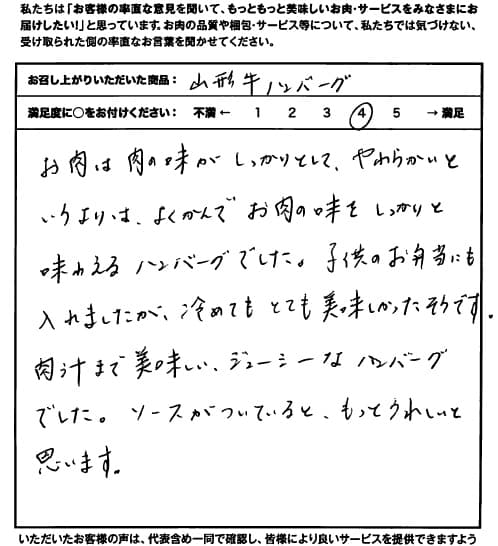 私たちは「お客様の率直な意見を聞いて、もっともっと美味しいお肉・サービスをみなさまにお
届けしたい!」と思っています。お肉の品質や梱包・サービス等について、私たちでは気づけない、
受け取られた側の率直なお言葉を聞かせてください。
お召し上がりいただいた商品: 山形牛ハンバーグ
満足度に○をお付けください: 不満 ← 1 2 3 4 5 → 満足
お肉は肉の味がしっかりとして、やわらかいと
いうよりは、よくかんでお肉の味をしっかりと
味わえるハンバーグでした。子供のお弁当にも
入れましたが、冷めてもとても美味しかったそうです。
肉汁まで美味しい、ジューシーなハンバーグ
でした。ソースがついていると、もっとうれしいと
思います。
いただいたお客様の声は、代表含め一同で確認し、皆様により良いサービスを提供できますよう